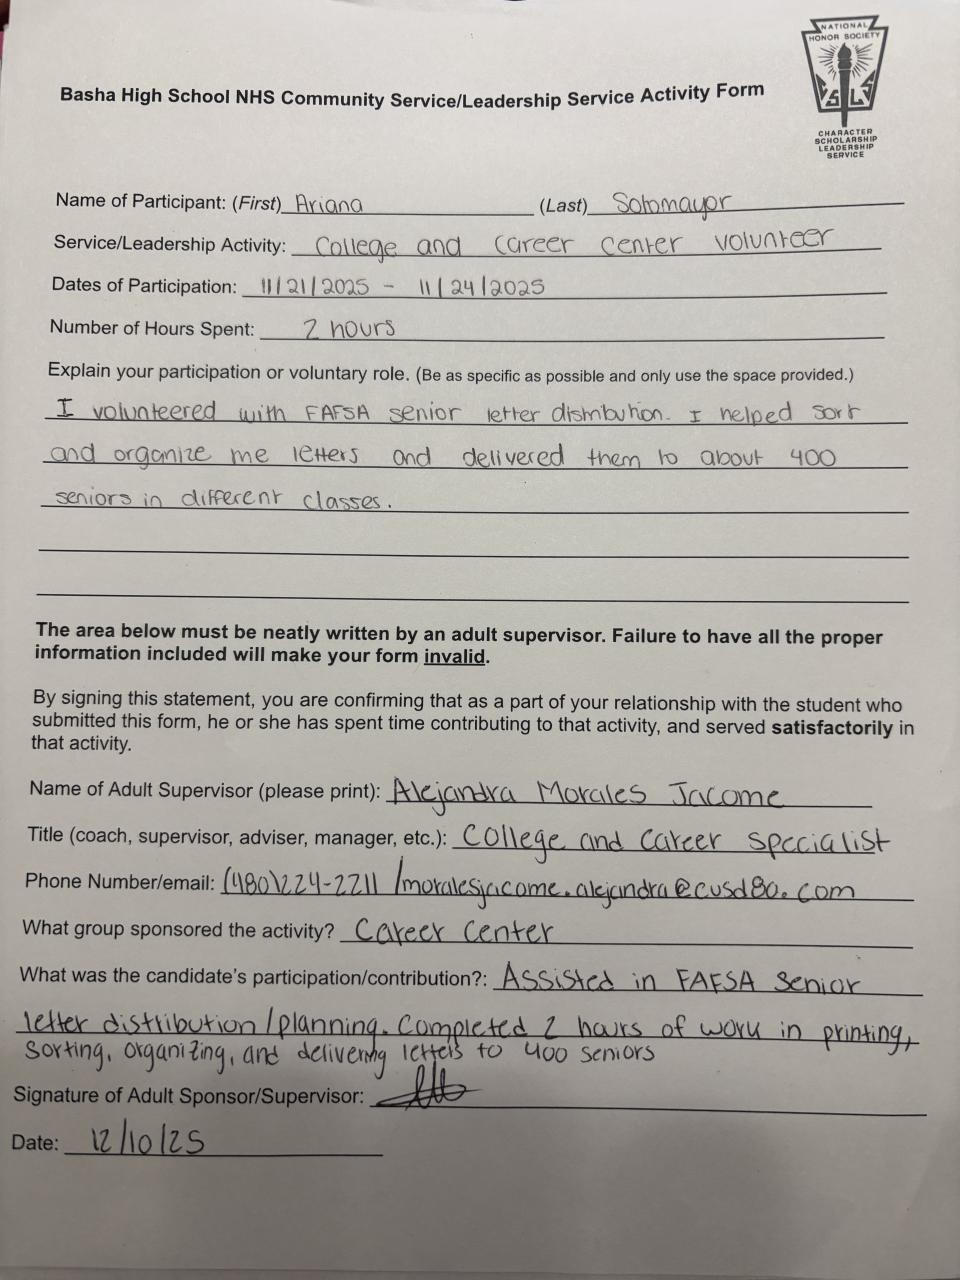 NATIONAL
HONOR SOCIETY
CHARACTER
SCHOLARSHIP
LEADERSHIP
SERVICE
Basha High School NHS Community Service/Leadership Service Activity Form
Name of Participant: (First) Ariana (Last) Sotomayor
Service/Leadership Activity: College and Career Center volunteer
Dates of Participation: 11/21/2025 - 11/24/2025
Number of Hours Spent: 2 hours
Explain your participation or voluntary role. (Be as specific as possible and only use the space provided.)
I volunteered with FAFSA senior letter distribution. I helped sort
and organize the letters and delivered them to about 400
seniors in different classes.
The area below must be neatly written by an adult supervisor. Failure to have all the proper
information included will make your form invalid.
By signing this statement, you are confirming that as a part of your relationship with the student who
submitted this form, he or she has spent time contributing to that activity, and served satisfactorily in
that activity.
Name of Adult Supervisor (please print): Alejandra Morales Jacome
Title (coach, supervisor, adviser, manager, etc.): College and Career Specialist
Phone Number/email: (480)224-2211 /moralesjacome.alejandra@cusd80.com
What group sponsored the activity? Career Center
What was the candidate's participation/contribution?: Assisted in FAFSA Senior
letter distribution/planning. Completed 2 hours of work in printing,
sorting, organizing, and delivering letters to 400 seniors
Signature of Adult Sponsor/Supervisor:
Date: 12/10/25